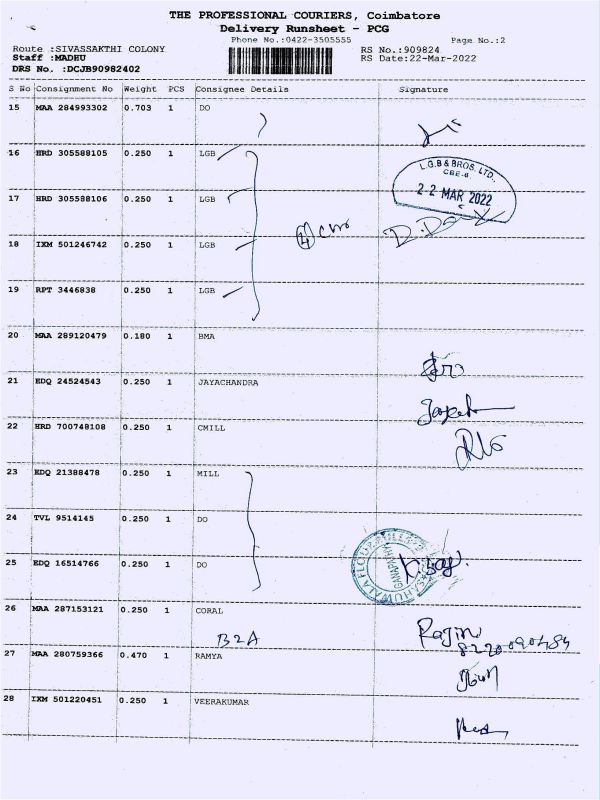 THE PROFESSIONAL COURIERS, Coimbatore
Delivery Runsheet - PCG
Phone No.:0422-3505555 Page No.:2
Route :SIVASSAKTHI COLONY RS No.:909824
Staff :MADHU RS Date:22-Mar-2022
DRS No. :DCJB90982402
S No Consignment No Weight PCS Consignee Details Signature
15 MAA 284993302 0.703 1 DO
16 HRD 305588105 0.250 1 LGB
L.G.B & BROS. LTD.
CBE-6.
22 MAR 2022
17 HRD 305588106 0.250 1 LGB
18 IXM 501246742 0.250 1 LGB
4
19 RPT 3446838 0.250 1 LGB
20 MAA 289120479 0.180 1 BMA
21 EDQ 24524543 0.250 1 JAYACHANDRA
22 HRD 700748108 0.250 1 CMILL
23 EDQ 21388478 0.250 1 MILL
24 TVL 9514145 0.250 1 DO
25 EDQ 16514766 0.250 1 DO
GANAPATHY
26 MAA 287153121 0.250 1 CORAL
B2A
27 MAA 280759366 0.470 1 RAMYA
28 IXM 501220451 0.250 1 VEERAKUMAR